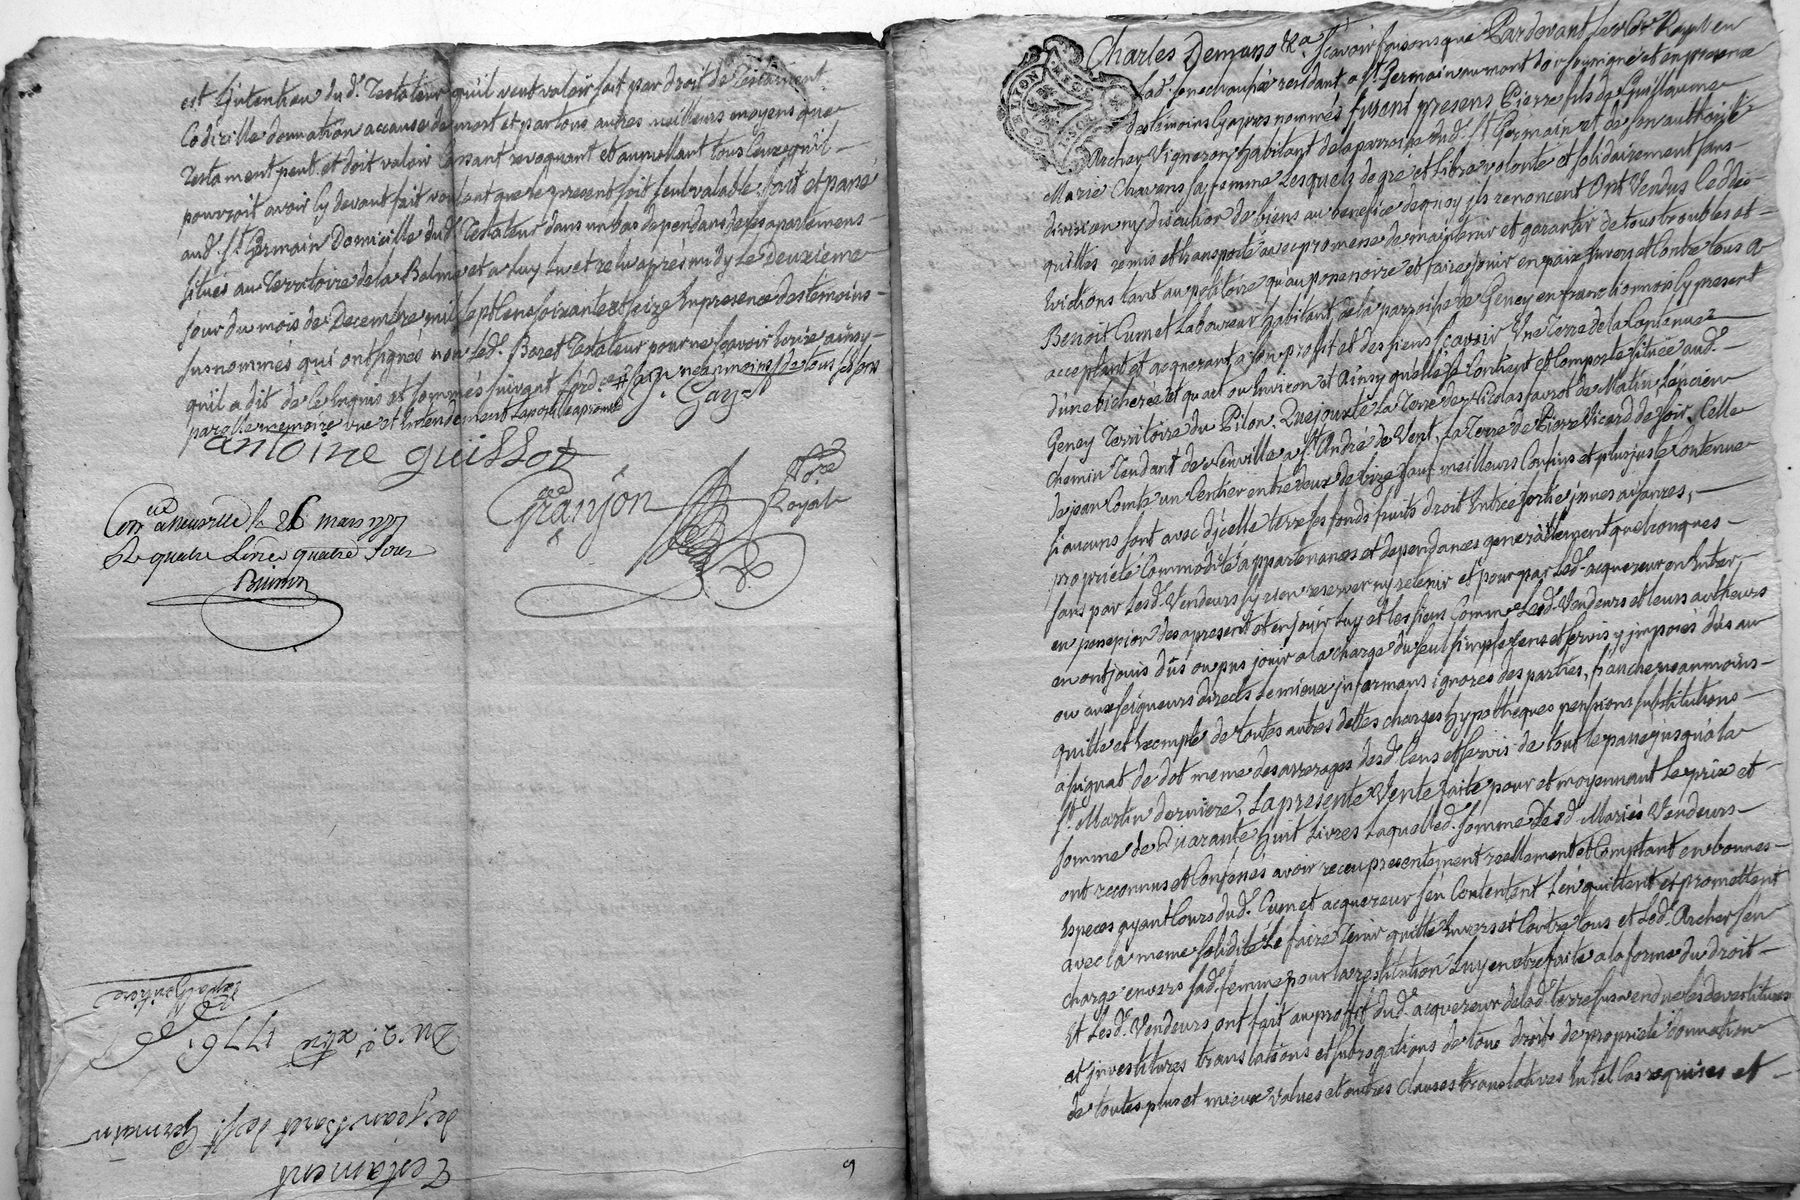 est Lintention du d.t Testateur quil veut valoir soit par droit de Testament
Codicille donnation a cause de mort et partous autres meilleurs moyens que
Testament peut et doit valoir Cassant revoquant et annullant tous Ceux quil
pourroit avoir Cy devant fait voulant que le present soit seul valable, fait et passé
aud. S.t Germain Domicille dud. Testateur dans un bas dependans de ses apartemens
situés au Territoire de la Balme et a luy lu et relu aprés midy Le Deuxieme
Jour du mois de Decembre mil sept Cens soixante et seize En presence des temoins
susnommés qui ont signes non Led. Boret Testateur pour ne scavoir Ecrire ainsy
quil a dit de ce Enquis et sommés suivant l'ordce neanmoins de tous ses sens
parolle memoire vue et Entendement
J. Gayet
antoine guillot
Granjon
N.re
Royal
Con.lé a Neuville le 26 mars 1777
R. quatre Livre quatre sous
Brimon
Testament
de Jean Boret de S.t Germain
Du 2.e xbre 1776.
9
Charles Demano &a. Scavoir faisons que Pardevant Le No.re Royal en
Lad. senechaussée residant a S.t Germain au mont d'or soussigné et en presence
des temoins Cy apres nommés furent presens Pierre fils de Guillaume
Archer Vigneron habitant de la parroisse dud. S.t Germain et de son authorité
Marie Chavens sa femme Lesquels de gré et Libre volonté et solidairement sans
division ny discution de biens au benefice de quoy ils renoncent Ont Vendus Cedés
quittes remis et transporté avec promesse de maintenir et garantir de tous troubles et
Evictions tant au petitoire qu'au possessoire et faire jouir en paix Envers et Contre tous a
Benoit Cumet Laboureur habitant de la parroisse de Genay en franc lionnois Cy present
acceptant et acquerant a son profit et des siens scavoir, Une Terre de la Contenue
d'une bicherée et quart ou Environ et Ainsy quelle se Contient et Comporte située aud.
Genay Territoire du Pilon. Quejouxte la Terre de Nicolas favrot de Matin, L'encien
chemin Tendant de Neuville a S.t André de Vent, La Terre de Pierre Vicard de soir, Celle
de jean Comte un Centier entre deux de bize, sauf meilleurs Confins et plus juste Contenue
si aucuns sont avec d'jcelle terre ses fonds fruits droit Entrée sortie jssues aisances,
proprieté Commodité appartenances et dependances generallement quelconques
sans par Lesd. Vendeurs sy rien reserver ny retenir et pour par Led. acquereur en Entrer
en possession des apresent et en jouir Luy et les siens Comme Lesd. Vendeurs et leurs autheurs
en ont jouis dûs ou pus jouir a la charge du seul simple Cens et servis y jmposés dûs au
ou aux seigneurs directs Le mieux jnformans ignorés des parties, franche neanmoins
quitte et Exempte de toutes autres dettes charges hypotheques pensions substitutions
assignat de dot meme des arrerages desd. Cens et servis de tout le passé jusqu'a la
S.t Martin derniere, La presente Vente faite pour et moyennant Le prix et
somme de Quarante huit Livres Laquelle d. somme Lesd. Mariés Vendeurs
ont reconnus et Confessés avoir receu presentement reellement et Comptant en bonnes
Especes ayant Cours dud. Cumet acquereur s'en Contentent L'en quittent et promettent
avec la meme solidité Le faire Tenir quitte Envers et Contre tous et Led. Archer s'en
charge envers sad. femme pour la restitution Luy en etre faite a la forme du droit
Et Lesd. Vendeurs ont fait au profit dud. acquereur de lad. terre susvendue les devestitures
et jnvestitures translations et subrogations de tous droits de proprieté donnation
de toutes plus et mieux values et autres clauses translatives En tel Cas requises et